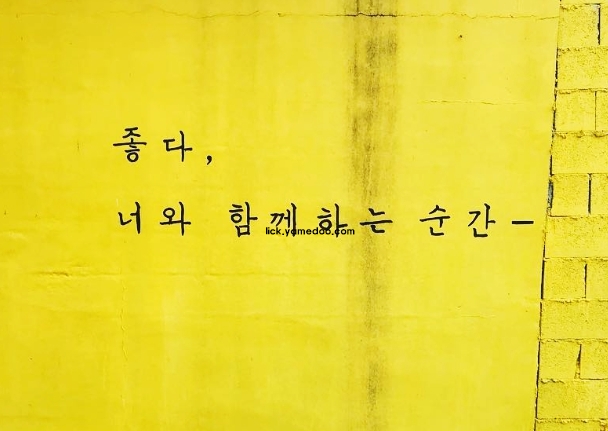 좋다,
너와 함께하는 순간-
lick.yamedoo.com